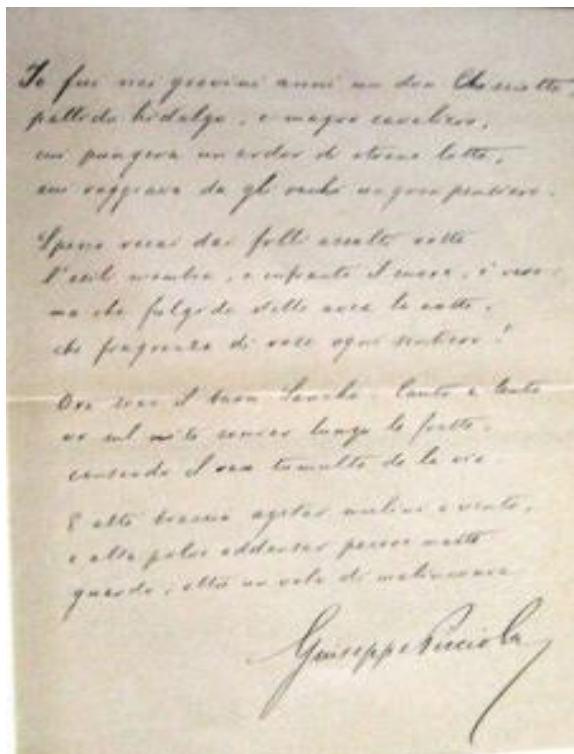 Io fui nei giovini anni un don Chisciotte,
pallido hidalgo, e magro cavaliero,
mi pungeva un ardor di strane lotte,
mi raggiava da gli occhi un gran pensiero.
Spesso recai dai folli assalti rotte
l'esili membra, e infranto il cuore, è vero:
ma che fulgido stelle avea la notte,
che fragranza di rose ogni sentiero!
Ora sono il buon Sancho. Cauto e lento
vo sul mite somier lungo le fratte,
cansando il van tumulto de la via.
E alte braccia agitar mulini a vento,
e alta polve addensar pecore matte
guardo, oltre un velo di malinconia
Giuseppe Picciola